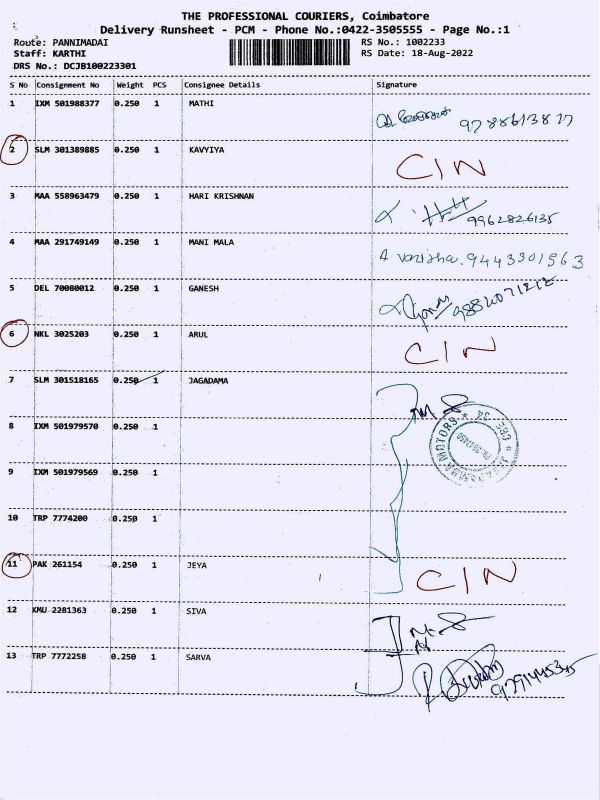 THE PROFESSIONAL COURIERS, Coimbatore
Delivery Runsheet - PCM - Phone No.:0422-3505555 - Page No.:1
Route: PANNIMADAI RS No.: 1002233
Staff: KARTHI RS Date: 18-Aug-2022
DRS No.: DCJB100223301
S No Consignment No Weight PCS Consignee Details Signature
1 IXM 501988377 0.250 1 MATHI
2 SLM 301389885 0.250 1 KAVYIYA CIN
3 MAA 558963479 0.250 1 HARI KRISHNAN 9962826135
4 MAA 291749149 0.250 1 MANI MALA Varisha. 9443301963
5 DEL 70080012 0.250 1 GANESH
6 NKL 3025203 0.250 1 ARUL CIN
7 SLM 301518165 0.250 1 JAGADAMA
8 IXM 501979570 0.250 1
9 IXM 501979569 0.250 1
10 TRP 7774200 0.250 1
11 PAK 261154 0.250 1 JEYA CIN
12 KMU 2281363 0.250 1 SIVA
13 TRP 7772258 0.250 1 SARVA